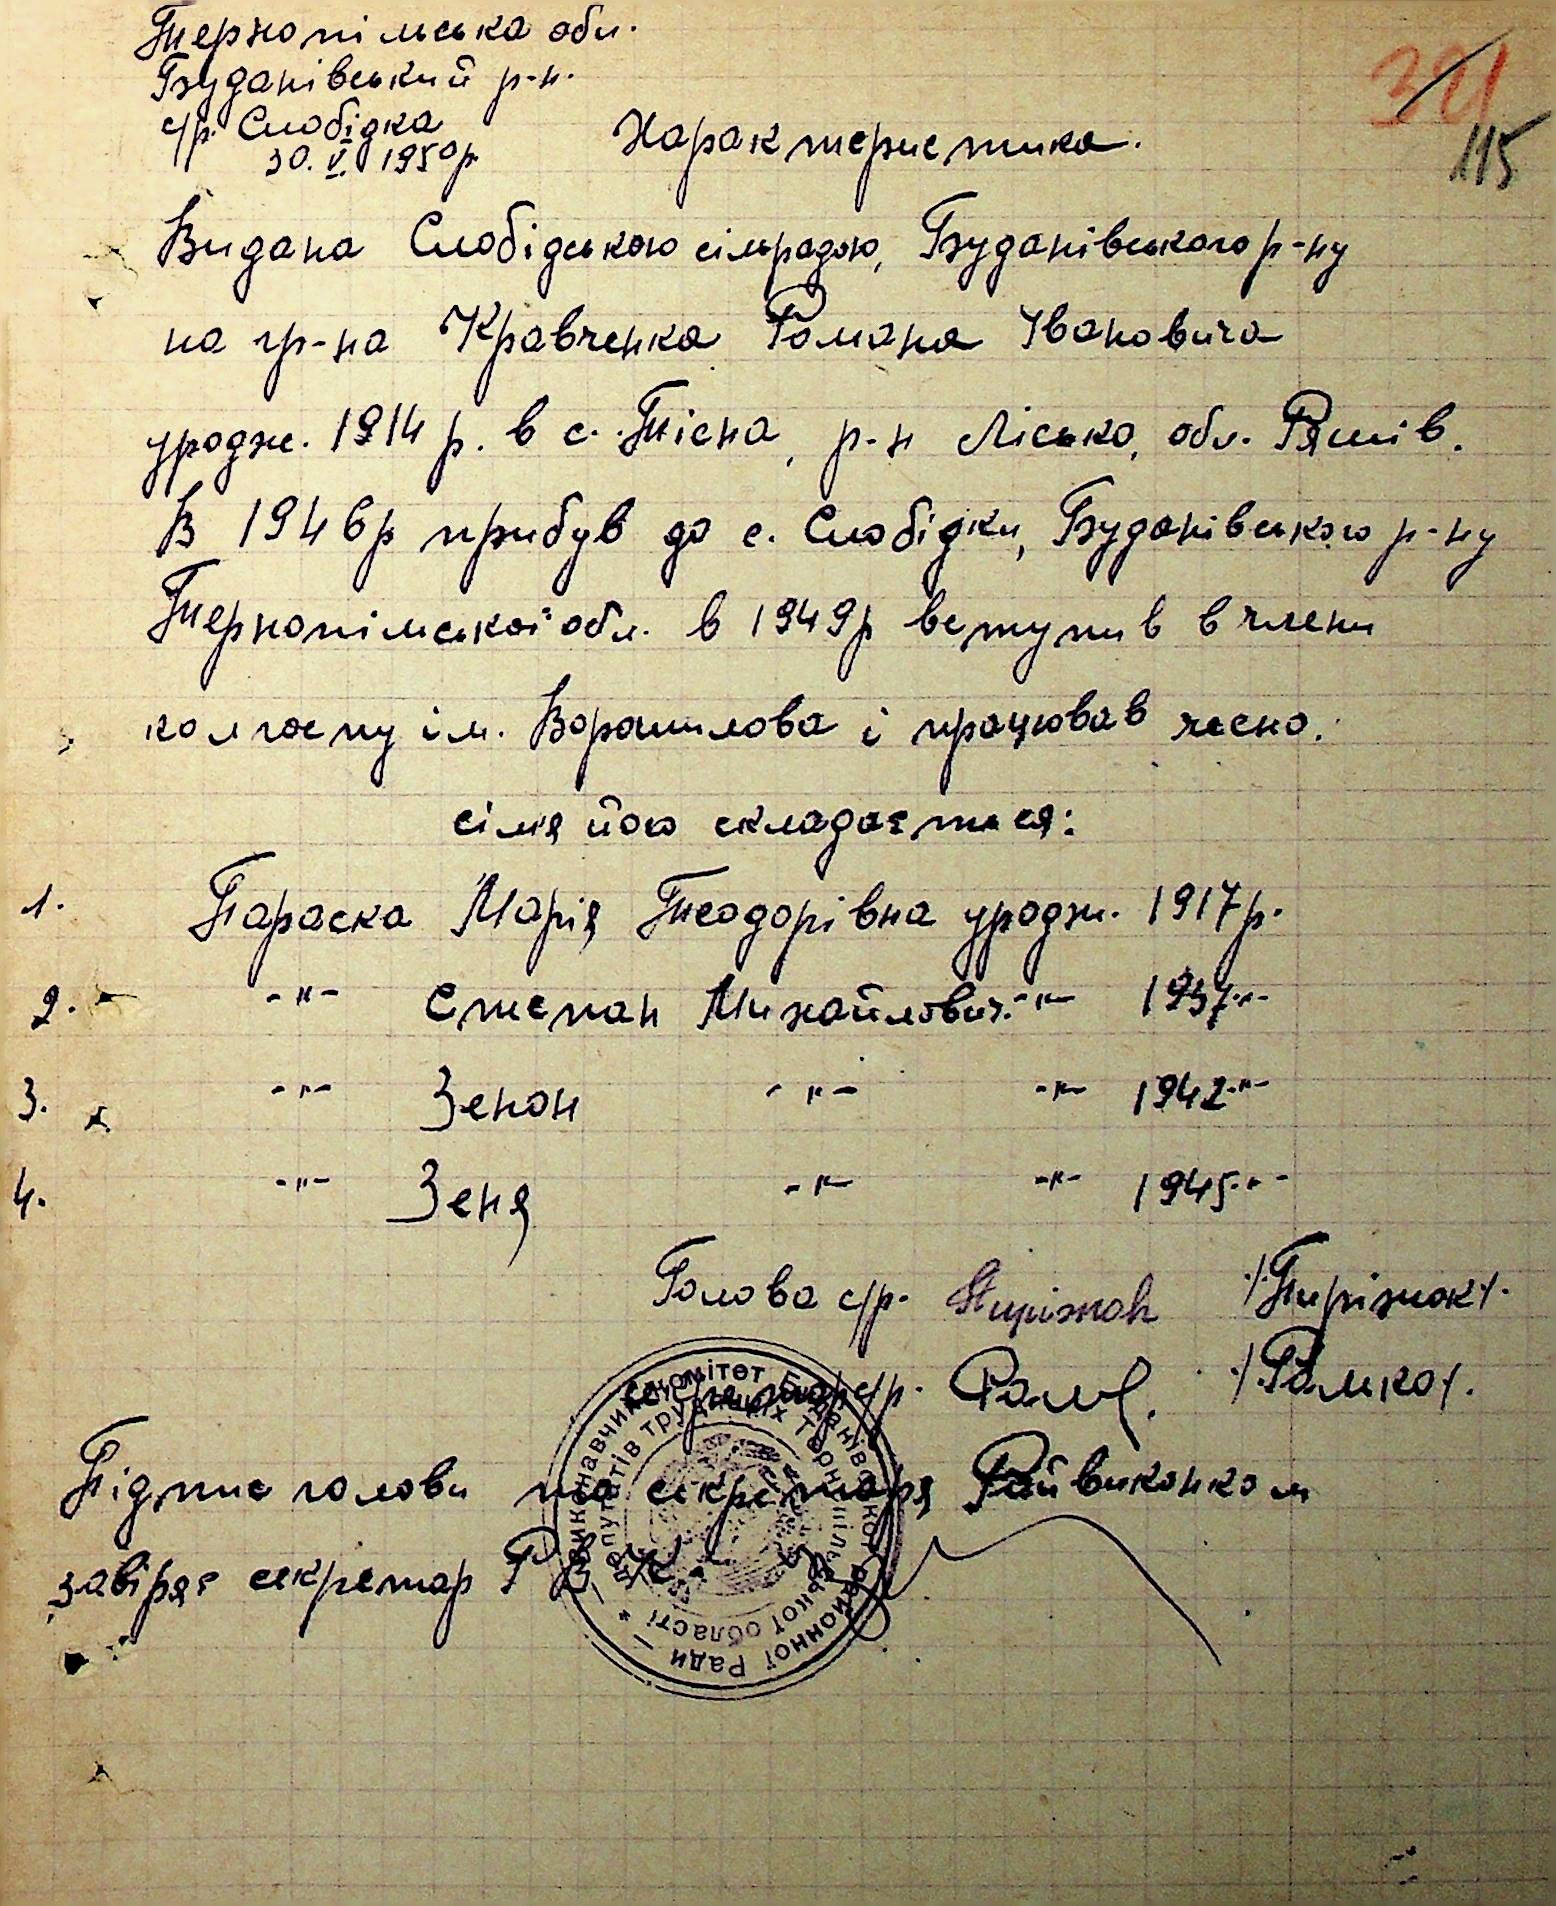 Тернопільська обл.
Буданівський р-н.
с/р. Слобідка
30. V. 1950р
Характеристика.
321
115
Видана Слобідською сільрадою, Буданівського р-ну
на гр-на Кравченка Романа Івановича
уродж. 1914 р. в с. Тісна, р-н Лісько, обл. Ряшів.
В 1946р прибув до с. Слобідки, Буданівського р-ну
Тернопільської обл. в 1949р вступив в члени
колгоспу ім. Ворошилова і працював чесно.
сімя його складається:
1. Параска Марія Теодорівна уродж. 1917р.
2. -"- Степан Михайлович. -"- 1937-"-
3. -"- Зенон -"- -"- 1942-"-
4. -"- Зеня -"- -"- 1945-"-
Голова с/р. Пиріжок /Пиріжок/.
секретар с/р. /Ромко/.
Підпис голови та секретаря Райвиконком
завіряє секретар Р.В.К.
Виконавчий комітет Буданівської районної Ради
депутатів трудящих Тернопільської області